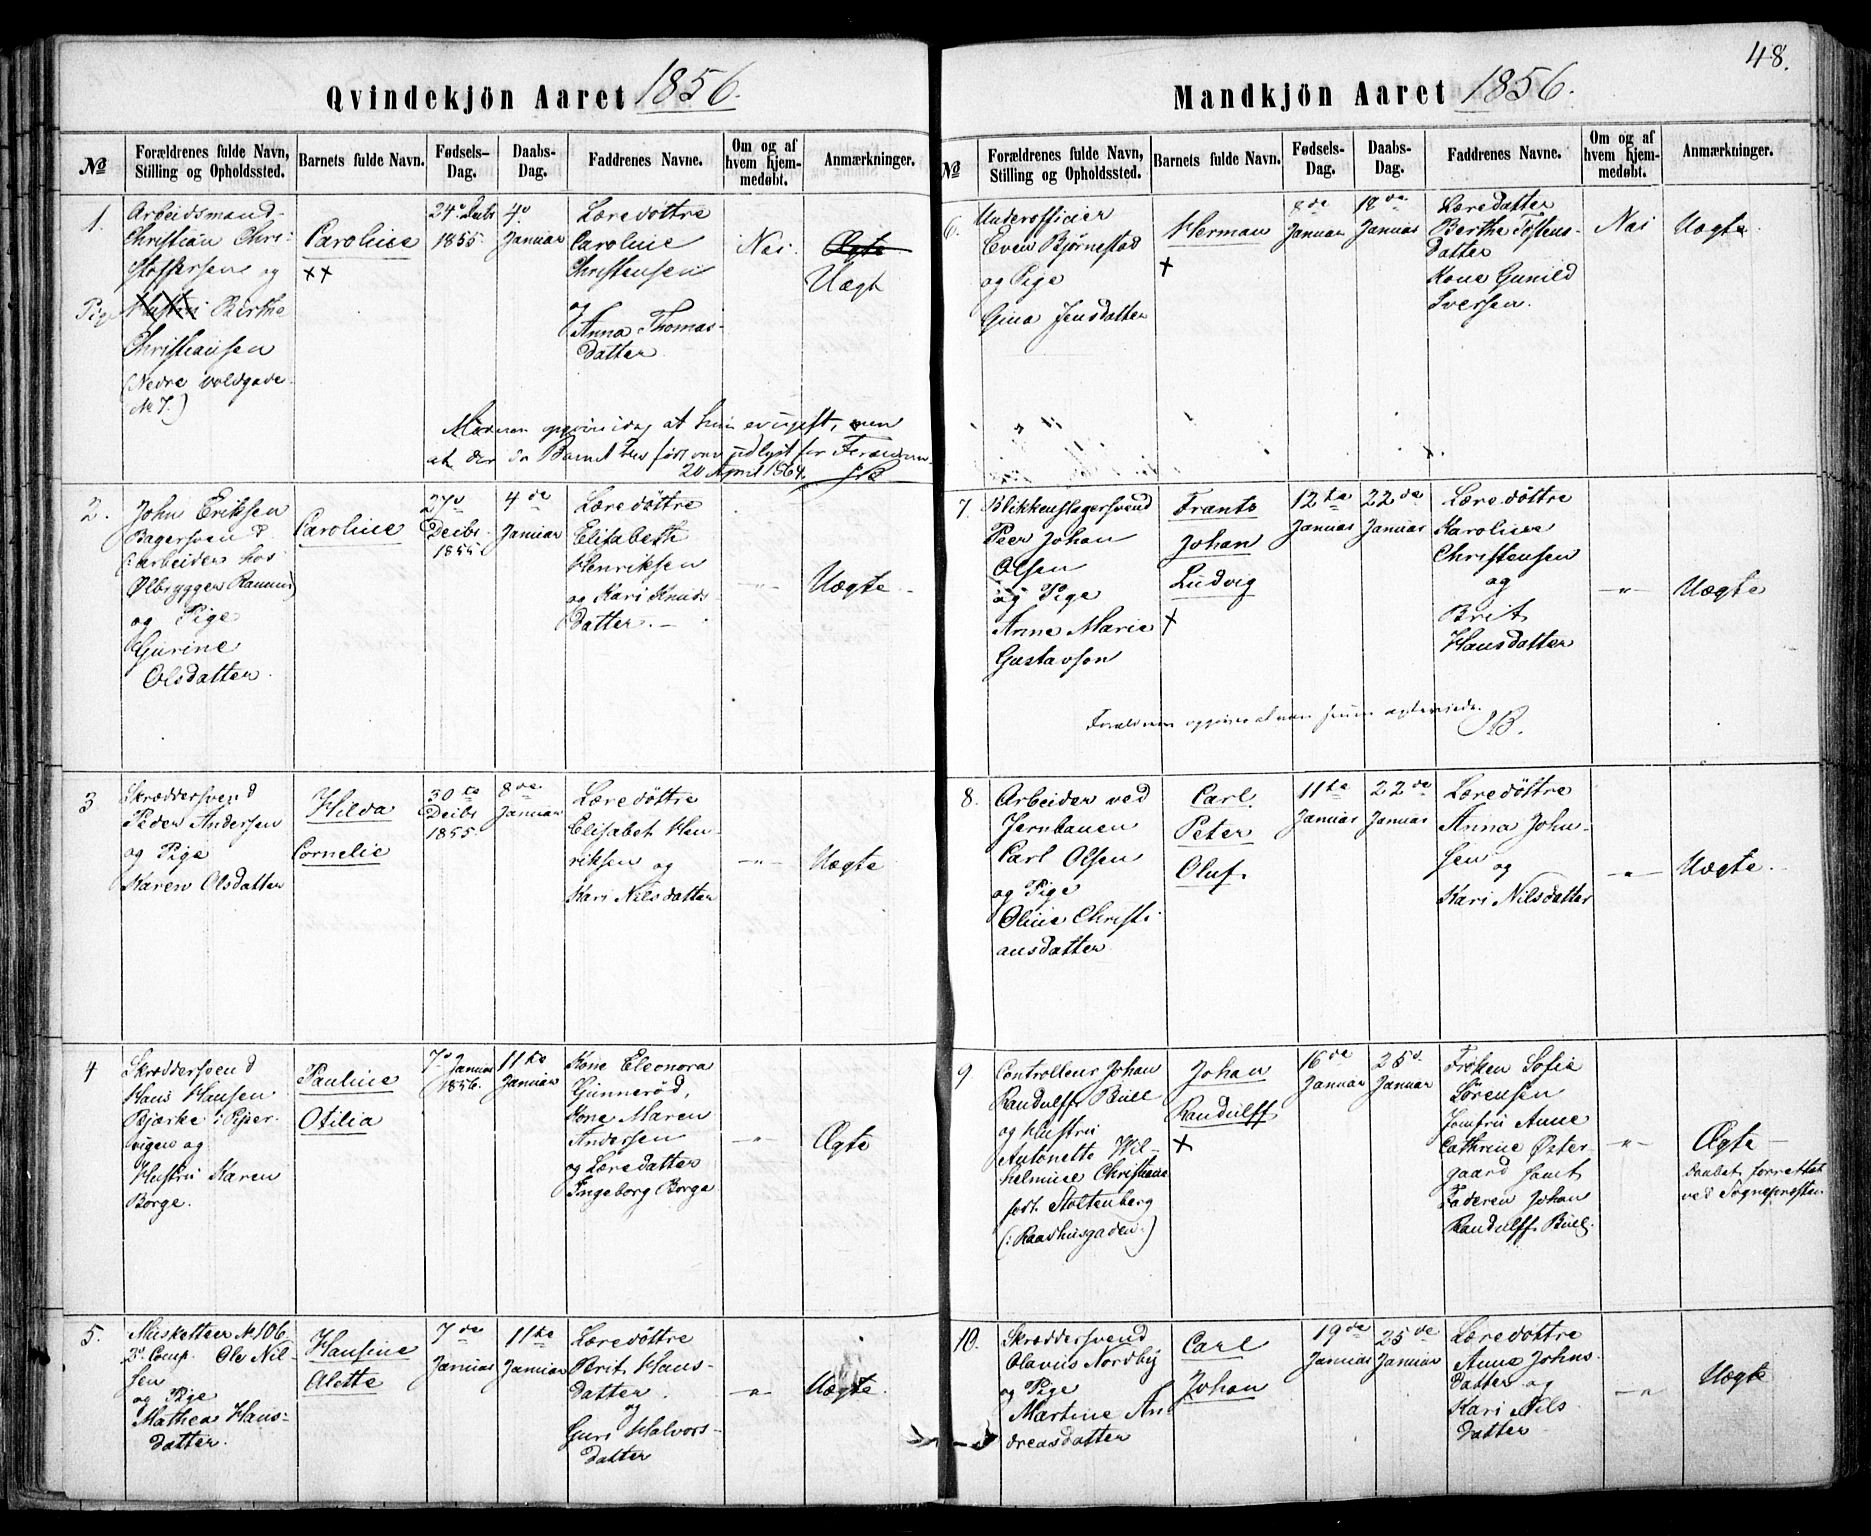 48.
Qvindekjön Aaret 1856.
No
Forældrenes fulde Navn,
Stilling og Opholdssted.
Barnets fulde Navn.
Fødsels-
Dag.
Daabs-
Dag.
Faddrenes Navne.
Om og af
hvem hjem-
medøbt.
Anmærkninger.
1.
Arbeidsmand
Christian Chri-
stoffersen og
Pige Hustru Berthe
Christiansen
(Nedre voldgade
No 7.)
Caroline
××
24de Decbr
1855.
4de
Januar
Læredøttre
Caroline
Christensen
og
Anna Thomas-
datter
Nei.
Ægte
Uægt
Moderen opgiver idag at hun er ugift, men
at der da Barnet blev født var udlyst for
20 April 1864.
2.
John Eriksen
Bagersvend
(:arbeider hos
Ølbrygger
og Pige
Gurine
Olsdatter.
Caroline
27de
Decbr
1855.
4de
Januar
Læredøttre
Elisabeth
Henriksen
og Kari Knuds-
datter. —
—"—
Uægte.
3
Skræddersvend
Peder Andersen
og Pige
Karen Olsdatter
Hilda
Cornelie
30te
Decbr
1855.
8de
Januar
Læredøttre
Elisabet Hen-
riksen og
Kari Nilsdatter
—"—
Uægte
4
Skræddersvend
Hans Hansen
Bjerke i Piper-
vigen og
Hustru Karen
Borge.
Pauline
Otilia
7de Januar
1856.
11te
Januar
Kone Eleonora
Gunnerød,
Kone Maren
Andersen
og Læredatter
Ingeborg Borge
—"—
Ægte
5.
Musketteer No 106
3d. Comp. Ole Nil-
sen
og Pige
Mathea Hans-
datter.
Hansine
Alette
7de
Januar
11te
Januar
Læredøttre
Brit Hans-
datter.
og
Guri Halvors-
datter
—"—
Uægte
Mandkjön Aaret 1856.
No
Forældrenes fulde Navn,
Stilling og Opholdssted.
Barnets fulde Navn.
Fødsels-
Dag.
Daabs-
Dag.
Faddrenes Navne.
Om og af
hvem hjem-
medøbt.
Anmærkninger.
6.
Underofficier
Even Bjørnestad
og Pige
Gina Jensdatter
Herman
×
8de
Januar
18de
Januar
Læredatter
Berthe Tostens-
datter
Kone Gunild
Iversen.
Nei
Uægte
7.
Blikkenslagersvend
Peer Johan
Olsen
og Pige
Anne Marie
Gustavson
Frants
Johan
Ludvig
×
12te
Januar
22de
Januar
Læredøttre
Karoline
Christensen
og
Brit
Hansdatter
—"—
Uægte
8.
Arbeider ved
Jernbanen
Carl Olsen
og Pige
Oline Christi-
ansdatter
Carl
Peter
Oluf.
11te
Januar
22de
Januar
Læredøttre
Anna John-
sen og
Kari Nilsdatter
—"—
Uægte.
9
Controlleur Johan
Randulff Bull
og Hustru
Antonette Wil-
helmine Christiane
født Stoltenberg
(:Raadhusgaden.)
Johan
Randulff
×
16de
Januar
25de
Januar
Frøken Sofie
Sørensen
Jomfru Anne
Cathrine Øster-
gaard samt
Faderen Johan
Randulff Bull.
—"—
Ægte —
Daabet forrettet
ved Sogneprosten
10.
Skræddersvend
Olavus Nordby
og Pige
Martine An
dreasdatter
Carl
Johan
19de
Januar
25de
Januar
Læredøttre
Anne Johns-
datter og
Kari Nils
datter
—"
Uægte